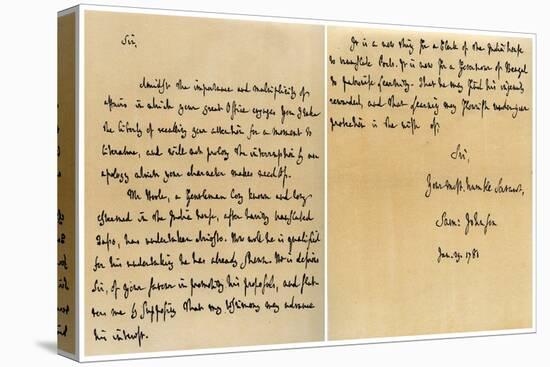 Sir,
Amidst the importance and multiplicity of
affairs in which your great Office engages you I take
the liberty of recalling your attention for a moment to
literature, and will not prolong the interruption by an
apology which your character makes needless.
Mr Hoole, a Gentleman long known and long
esteemed in the India house, after having translated
Tasso, has undertaken Ariosto. How well he is qualified
for his undertaking he has already shewn. He is desirous
Sir, of your favour in promoting his proposals, and flat-
ters me by supposing that my testimony may advance
his interest.
It is a new thing for a clerk of the India house
to translate Poets. It is new for a Governour of Bengal
to patronise learning. That he may find his ingenuity
rewarded, and that learning may flourish under your
protection is the wish of,
Sir,
Your most humble Servant,
Sam: Johnson
Jan. 29. 1781